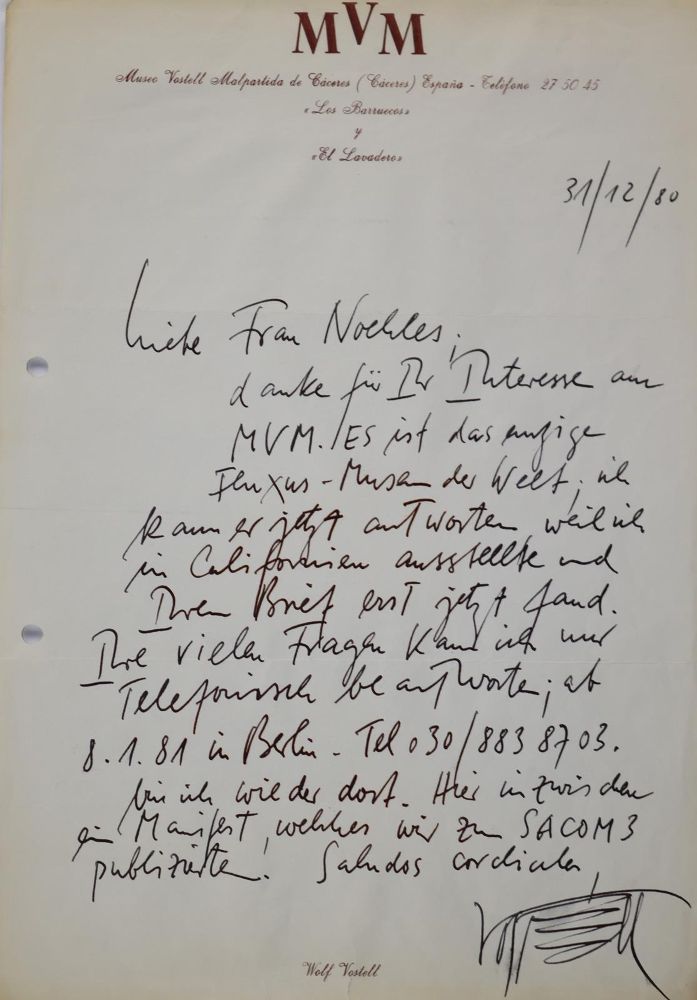 MVM
Museo Vostell Malpartida de Cáceres (Cáceres) España - Teléfono 27 50 45
«Los Barruecos»
y
«El Lavadero»
31/12/80
Liebe Frau Noehles,
danke für Ihr Interesse am
MVM. Es ist das einzige
Fluxus-Museum der Welt, ich
kann erst jetzt antworten, weil ich
in Californien ausstellte und
Ihren Brief erst jetzt fand.
Ihre vielen Fragen kann ich nur
Telefonisch beantworten; ab
8.1.81 in Berlin - Tel 030/883 8703.
bin ich wieder dort. Hier inzwischen
ein Manifest, welches wir zum SACOM 3
publizierten. Saludos cordiales,
Vostell
Wolf Vostell